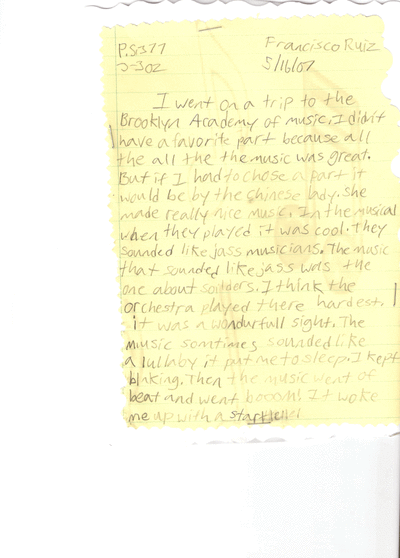 P.S.377 Francisco Ruiz
3-302 5/16/07
I went on a trip to the
Brooklyn Academy of music. I didn't
have a favorite part because all
the all the the music was great.
But if I had to chose a part it
would be by the chinese lady. She
made really nice music. In the musical
when they played it was cool. They
sounded like jass musicians. The music
that sounded like jass was the
one about soilders. I think the
orchestra played there hardest.
it was a wondurfull sight. The
music somtimes sounded like
a lullaby it put me to sleep. I kept
blinking. Then the music went of
beat and went booom! It woke
me up with a